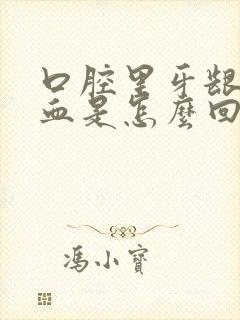 口腔里牙龈
血是怎麼回
冯小寶